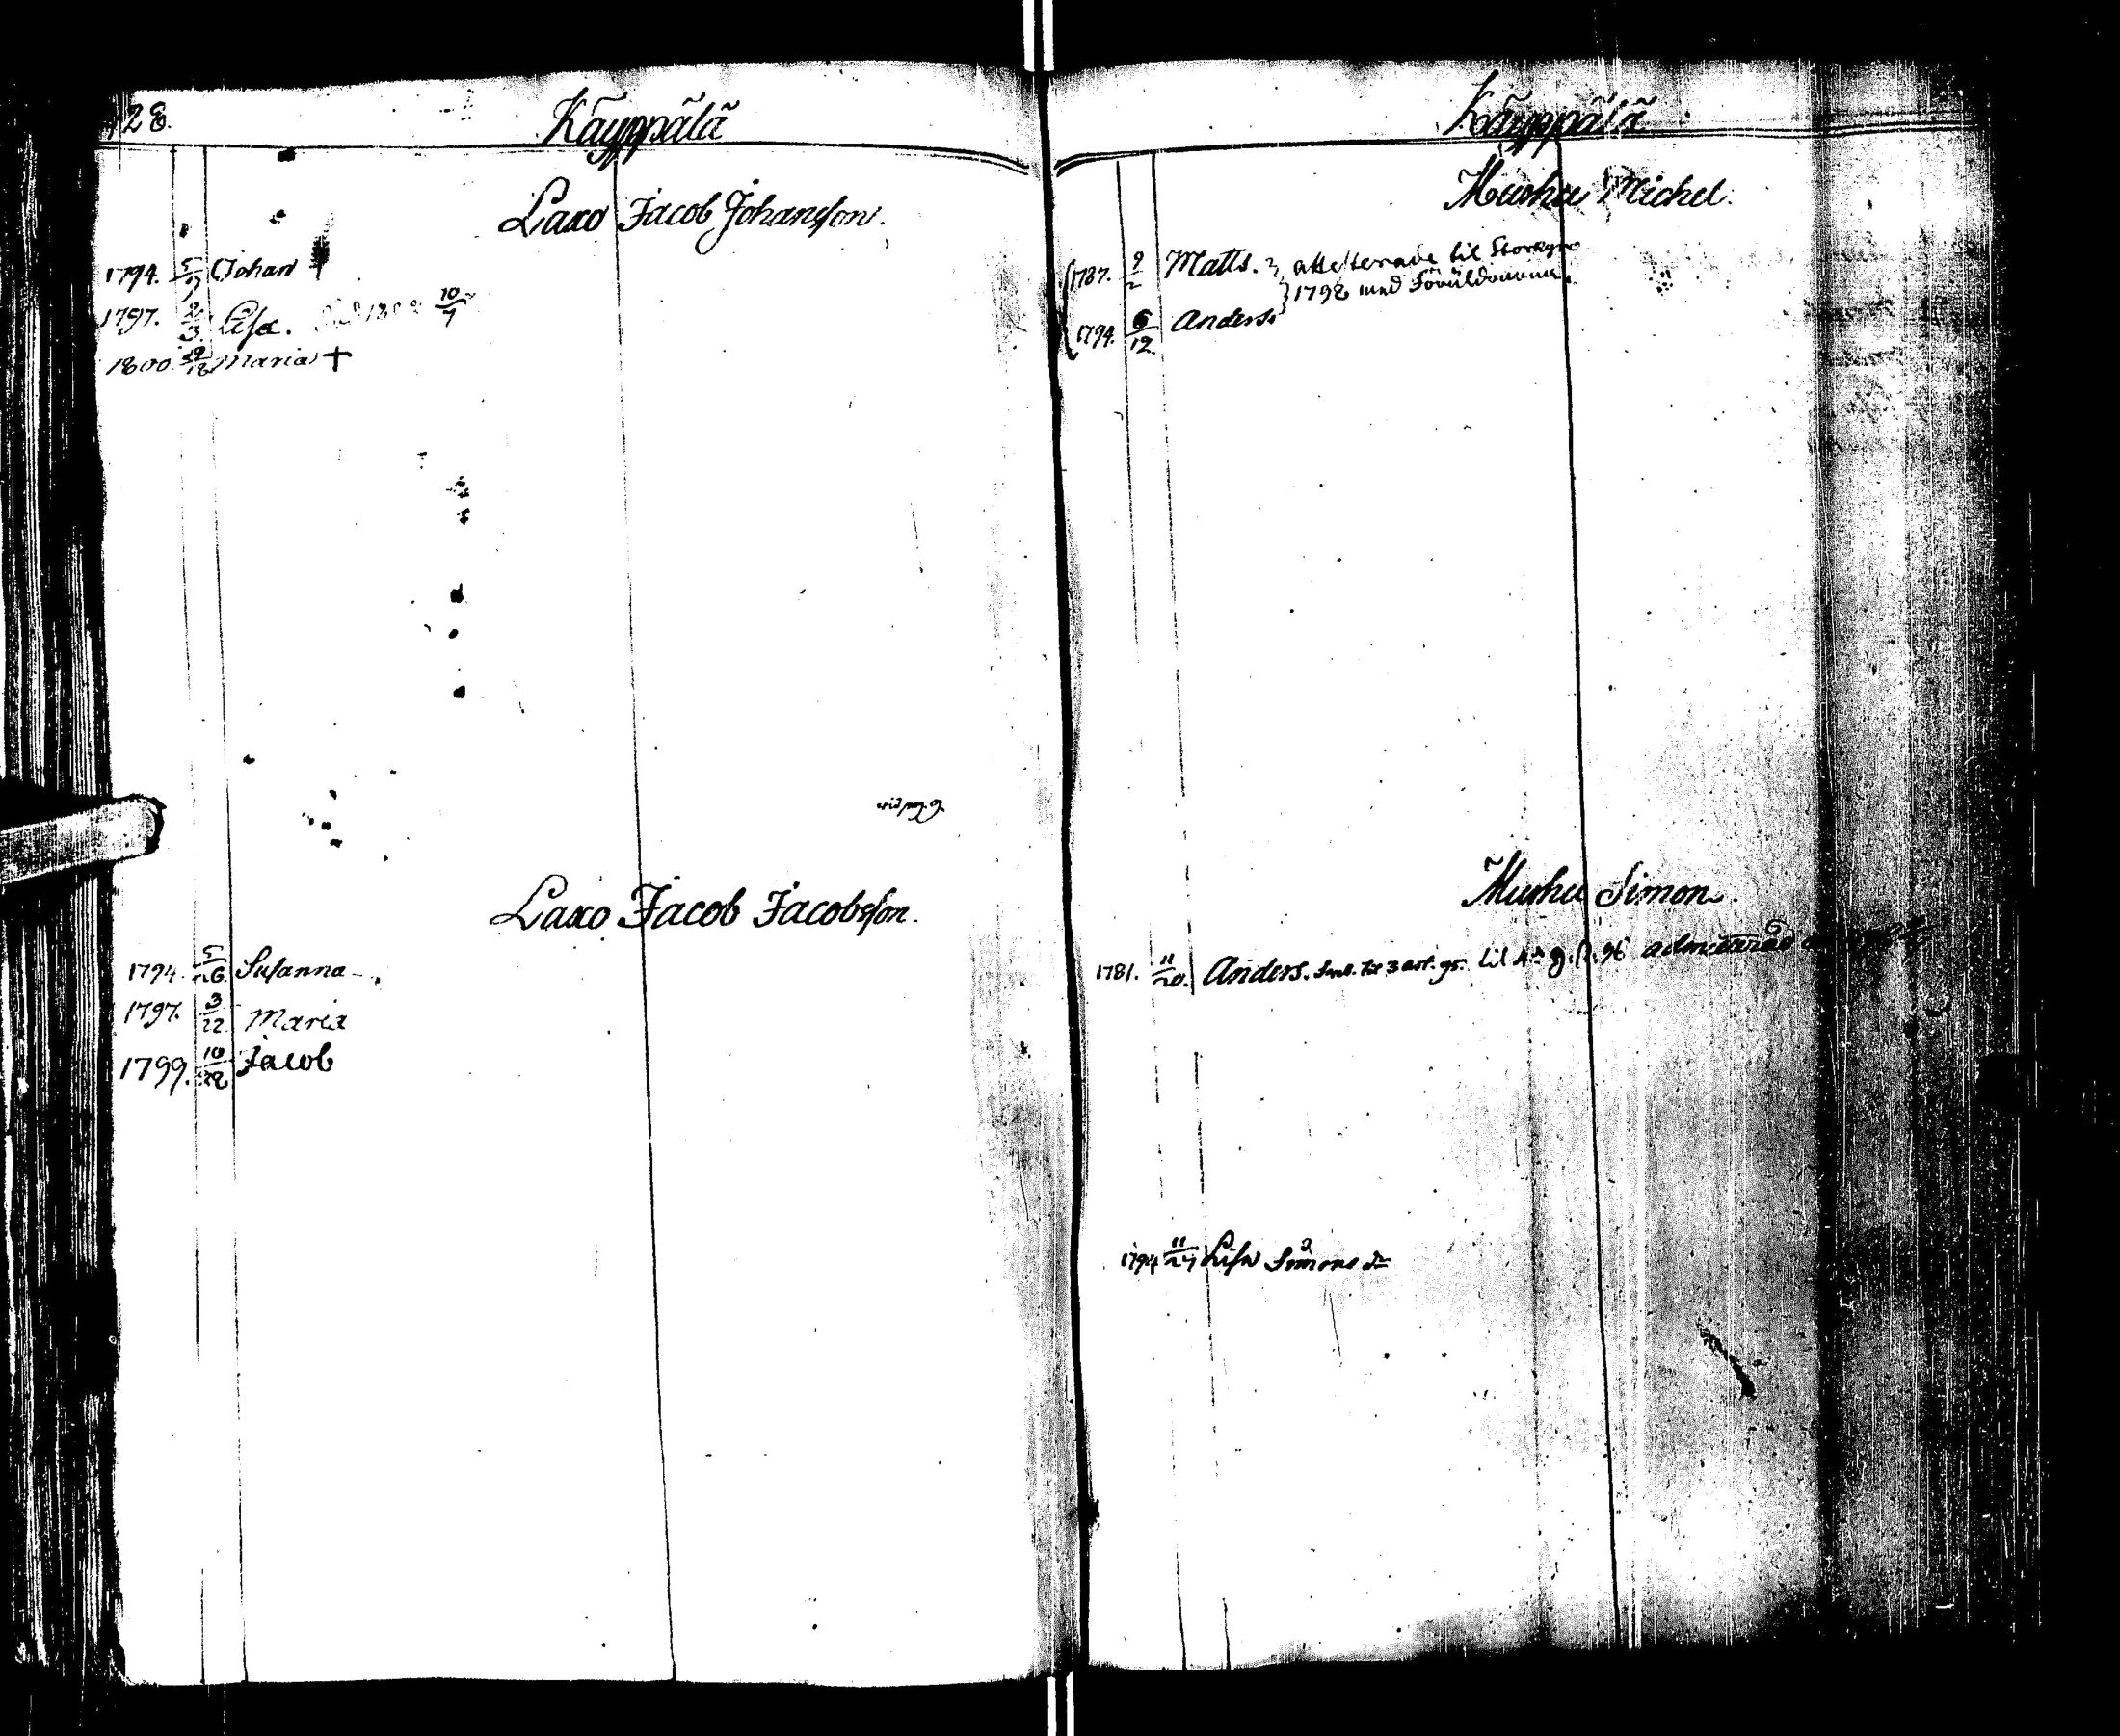 128.
Käyppälä
Laxo Jacob Johansson.
1794. 5/9 Johan +
1797. 2/3 Lisa. 10/7
1800. Maria +
vid pag. 9
Laxo Jacob Jacobsson.
1794. 5/26. Susanna
1797. 3/22 Maria
1799. 10/28 Jacob
Käyppälä
Muhu Michel.
1787. 9/2 Matts. attesterade til Storkyro
1798 med Föräldrarna.
1794. 6/12. Anders
Muhu Simon.
1781. 11/20. Anders. til 3 art. 95. til 96 admitterad
1794 11/27 Lisa Simons dr